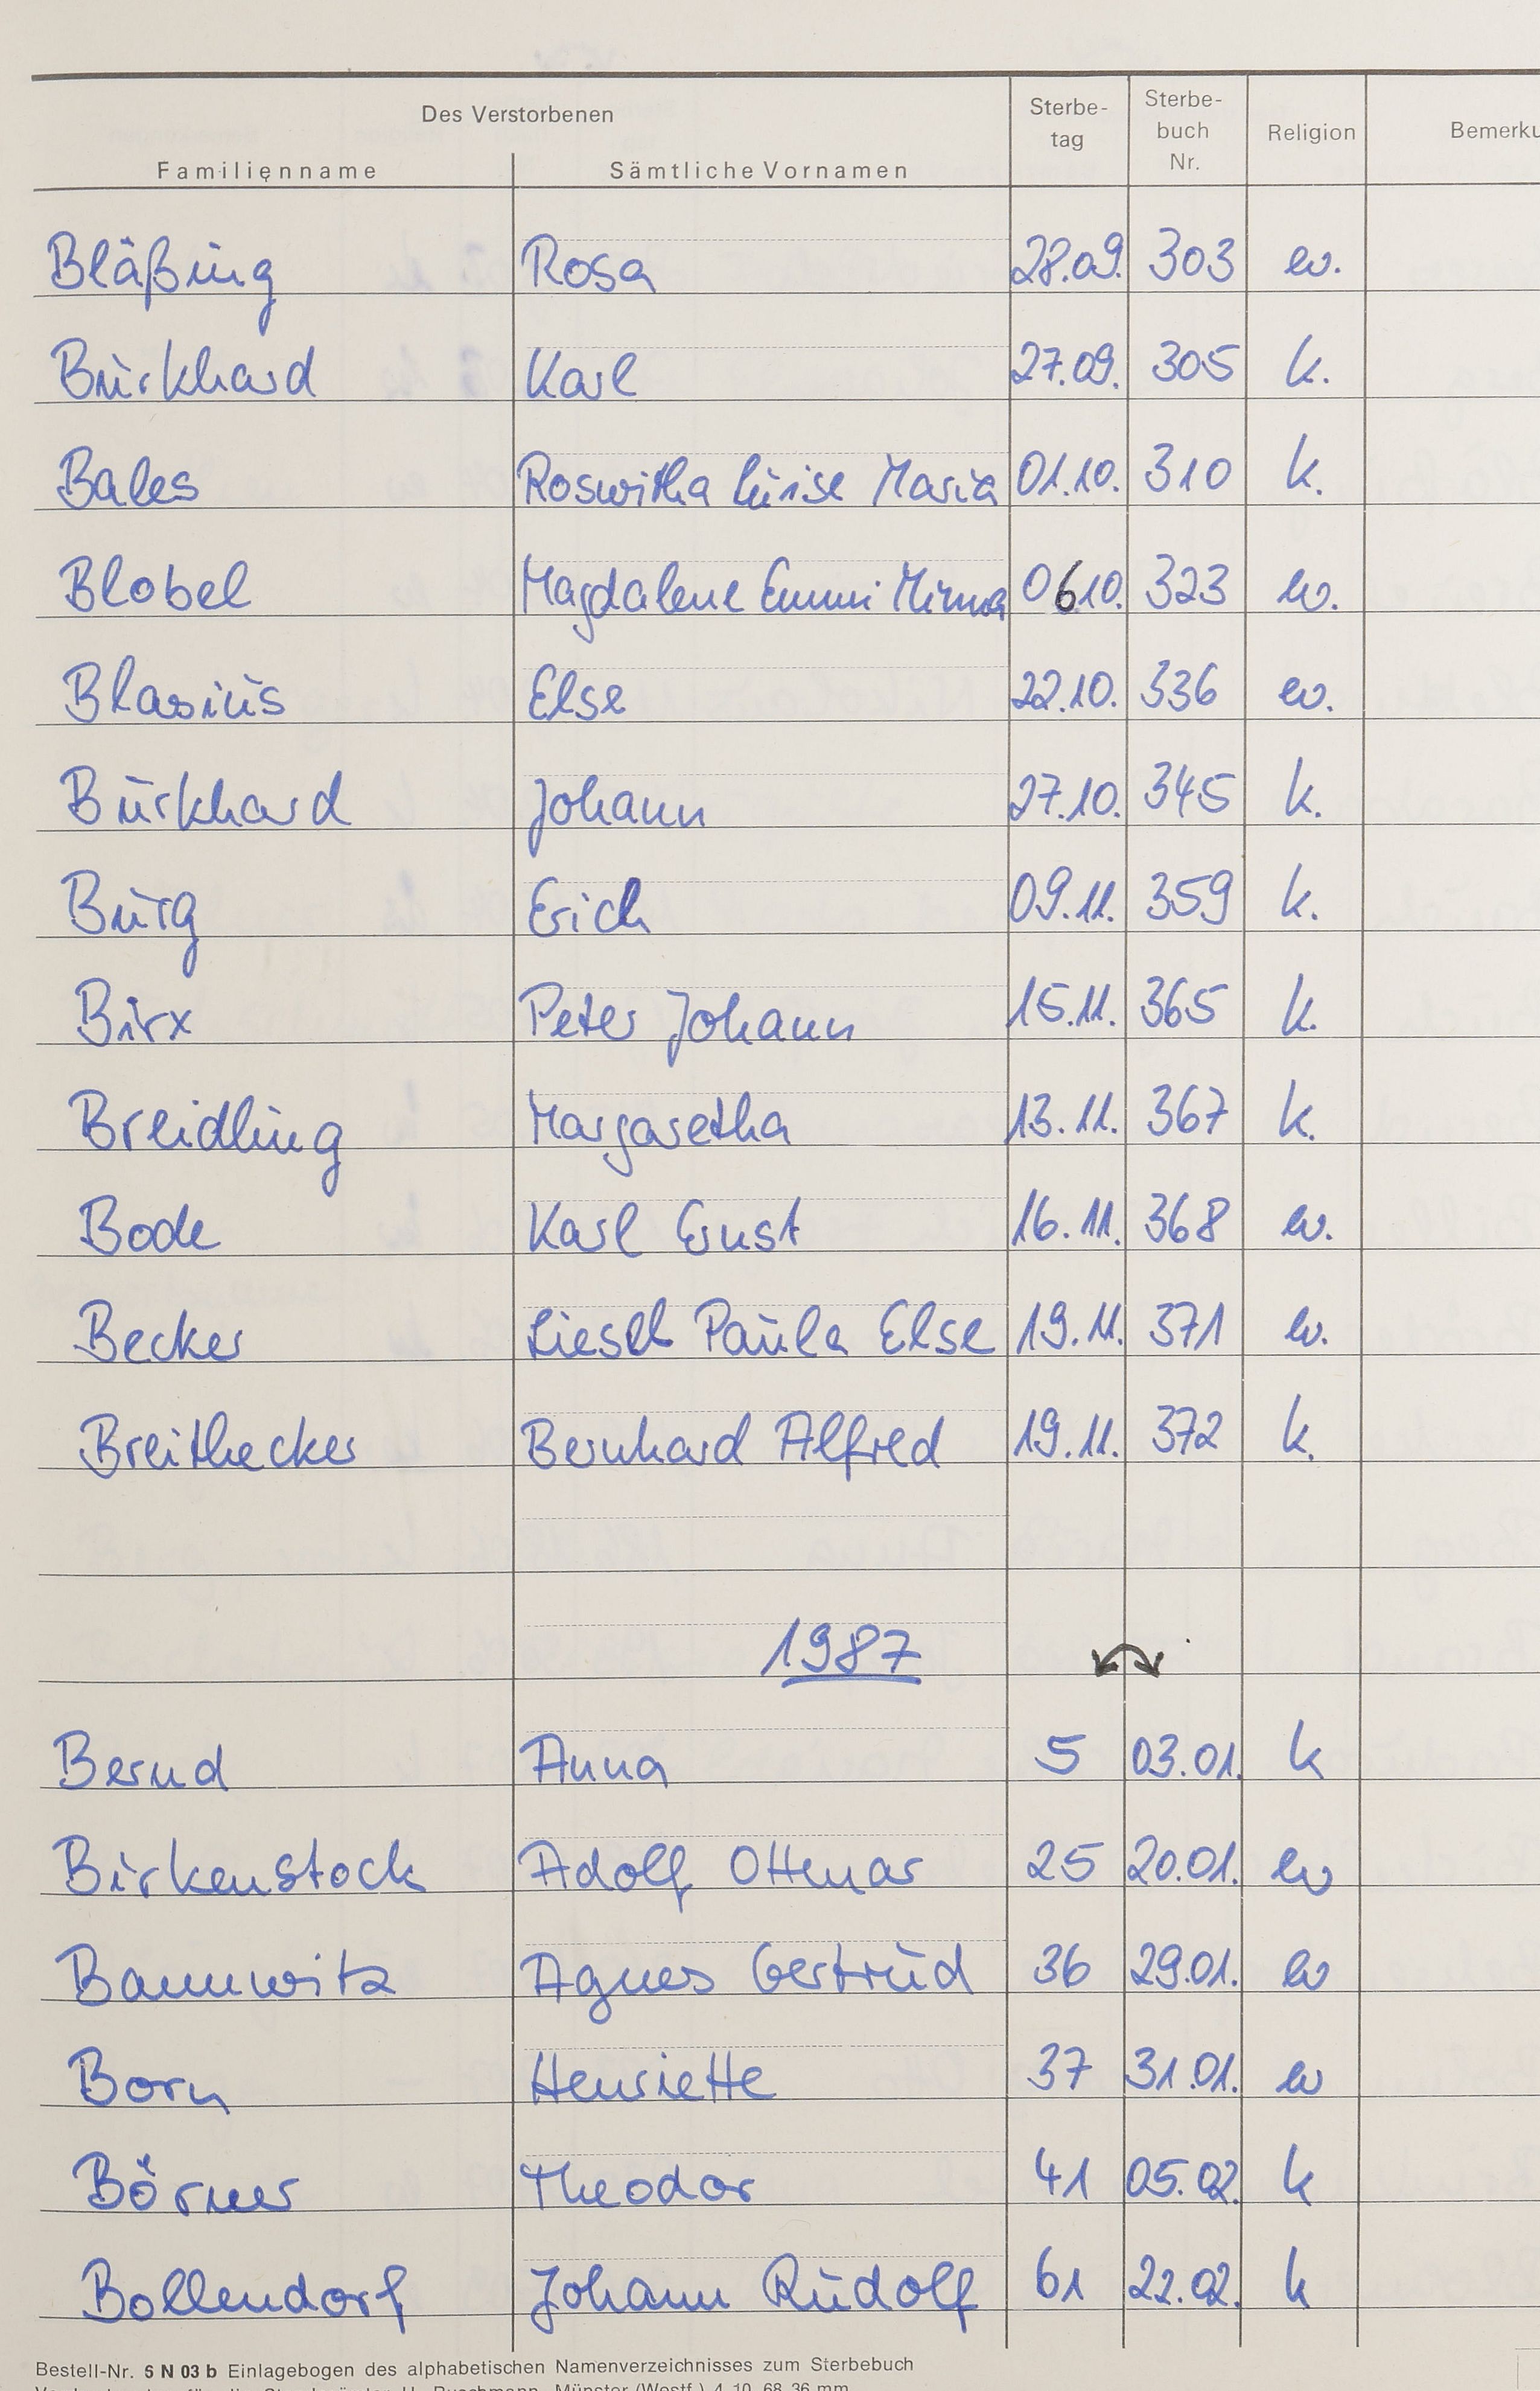 Des Verstorbenen
Sterbe-
tag
Sterbe-
buch
Nr.
Religion
Bemerku
Familienname Sämtliche Vornamen
Bläßing Rosa 28.09. 303 ev.
Burkhard Karl 27.09. 305 k.
Bales Roswitha Luise Maria 01.10. 310 k.
Blobel Magdalene Emmi Minna 06.10. 323 ev.
Blasius Else 22.10. 336 ev.
Burkhard Johann 27.10. 345 k.
Burg Erich 09.11. 359 k.
Birx Peter Johann 15.11. 365 k.
Breidling Margaretha 13.11. 367 k.
Bode Karl Ernst 16.11. 368 ev.
Becker Liesel Paula Else 19.11. 371 ev.
Breithecker Bernhard Alfred 19.11. 372 k.
1987
Bernd Anna 5 03.01. k
Birkenstock Adolf Ottmar 25 20.01. ev
Baumwitz Agnes Gertrud 36 29.01. ev
Born Henriette 37 31.01. ev
Börner Theodor 41 05.02. k
Bollendorf Johann Rudolf 61 22.02. k
Bestell-Nr. 5 N 03 b Einlagebogen des alphabetischen Namenverzeichnisses zum Sterbebuch
Münster (Westf.) 4 10. 68 36 mm